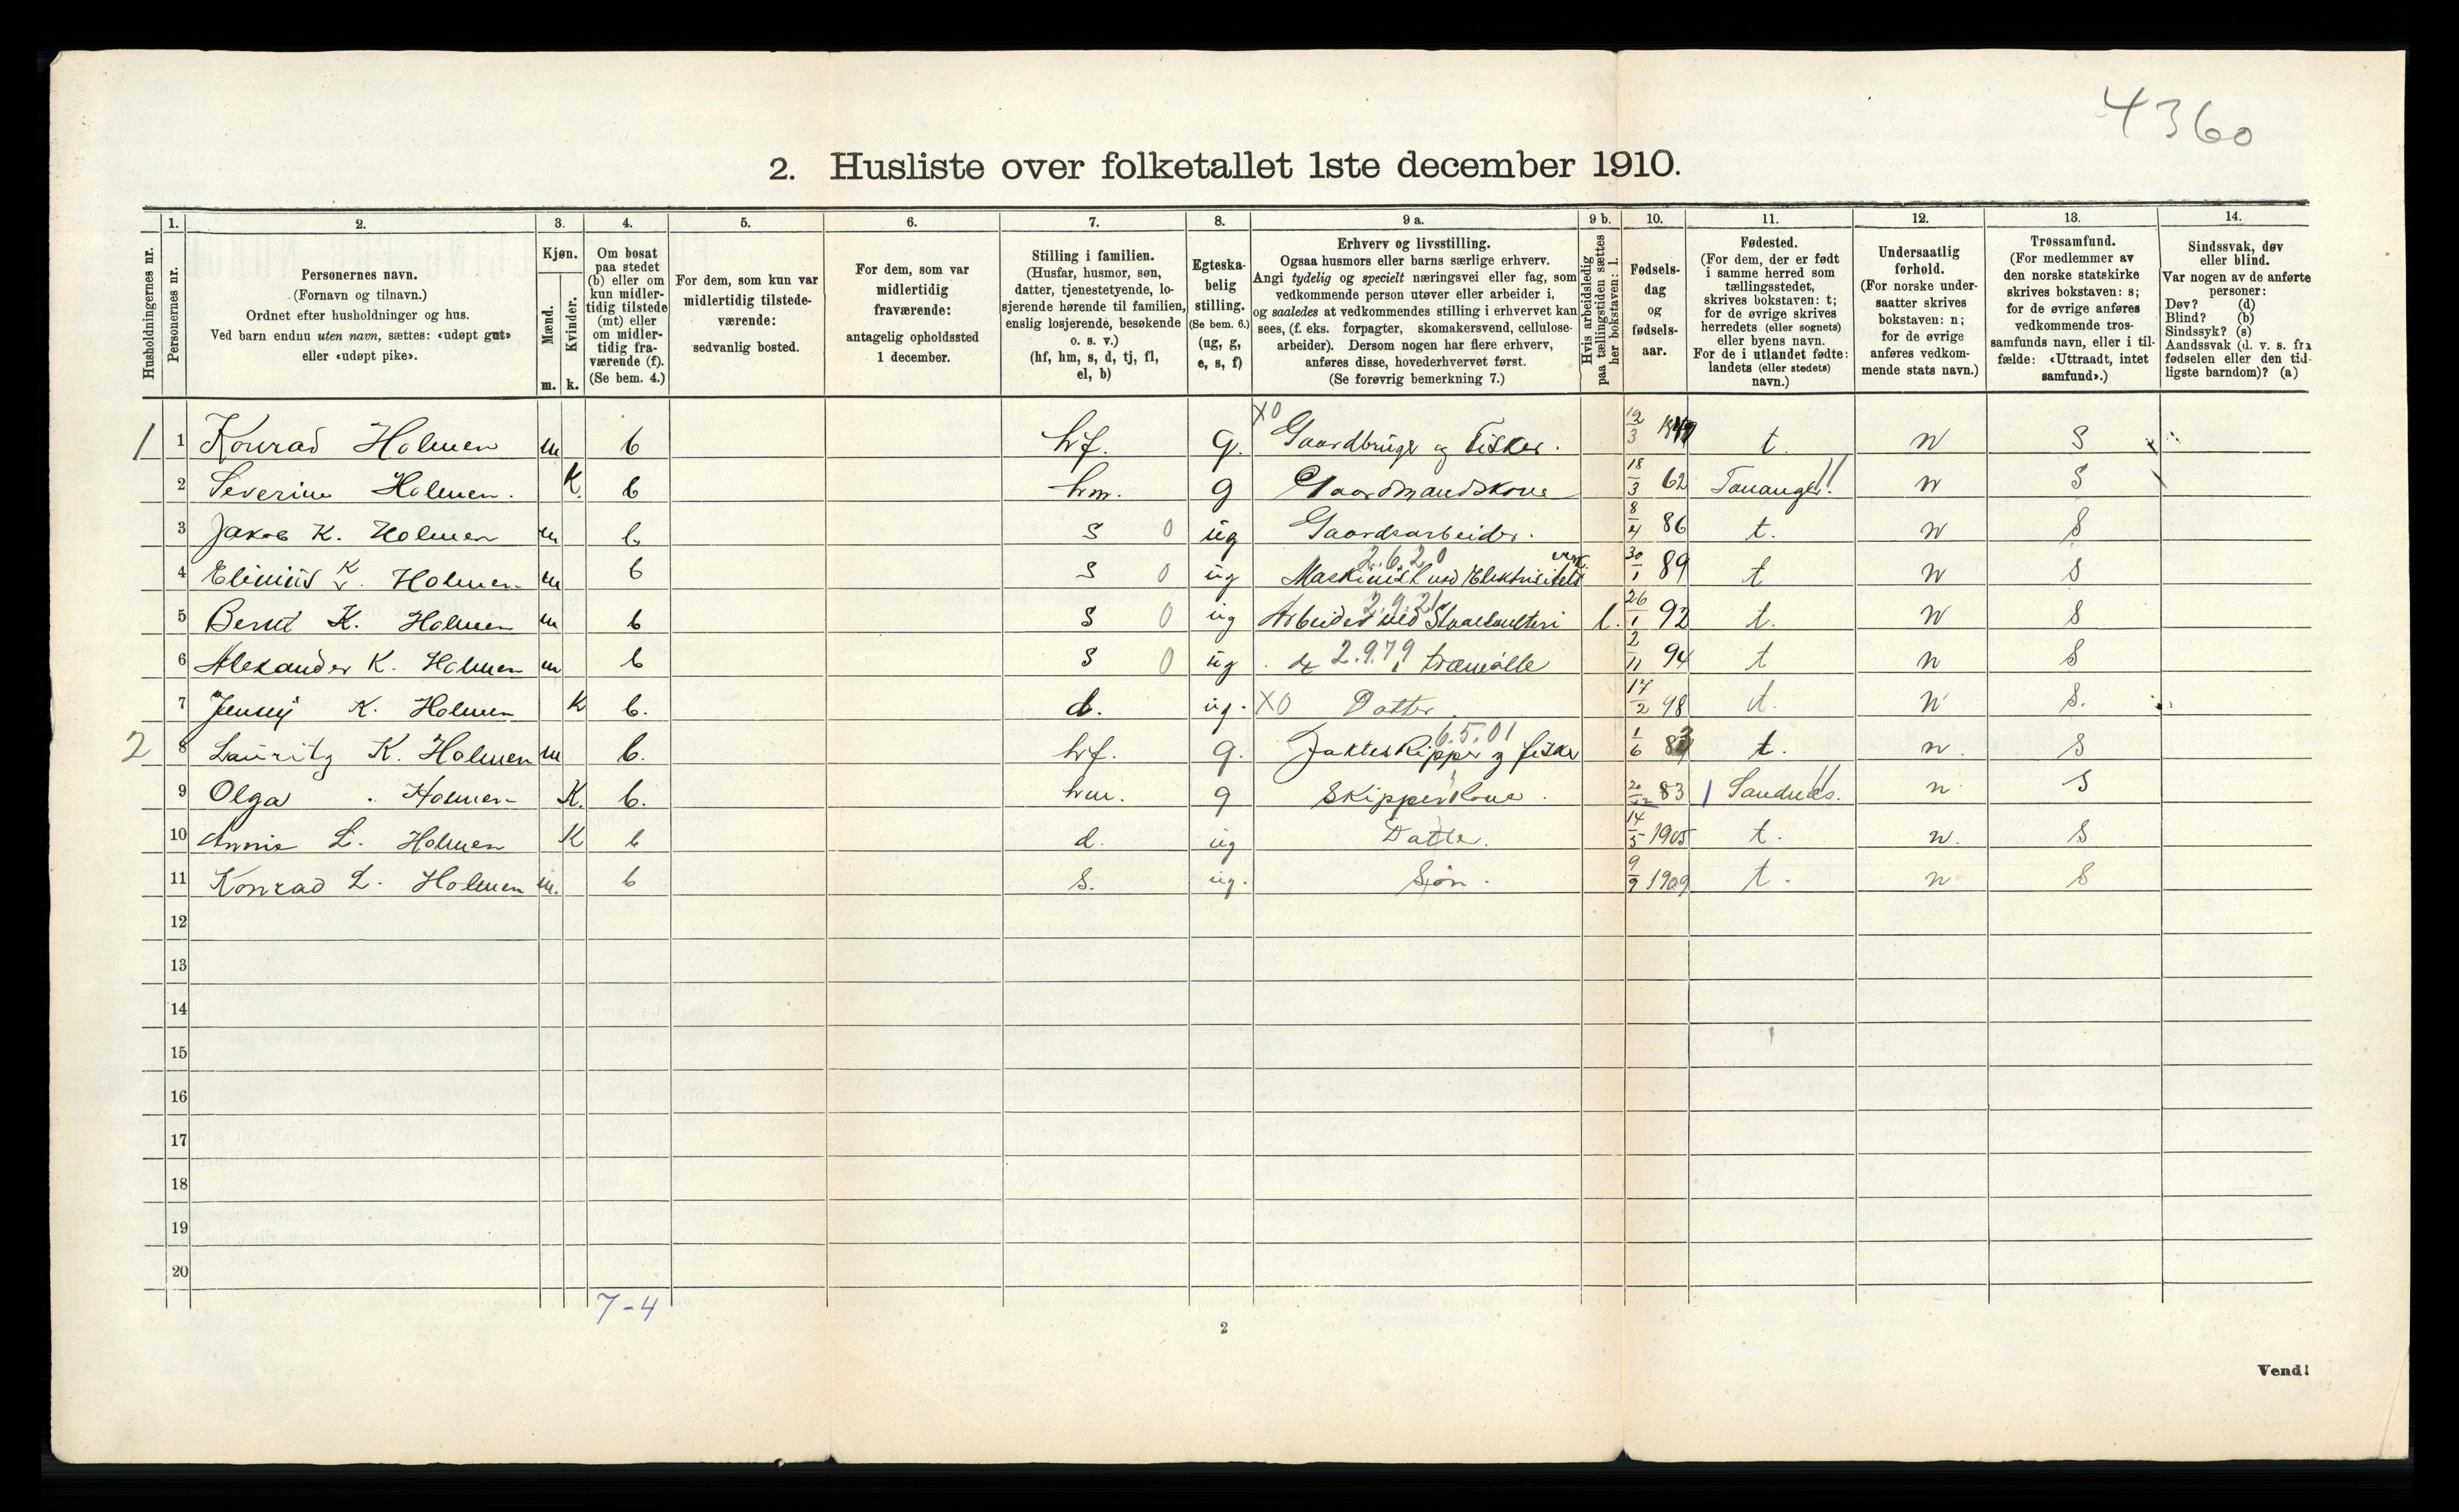 4360
2. Husliste over folketallet 1ste december 1910.
Husholdningernes nr.
1. Personernes nr.
2. Personernes navn.
(Fornavn og tilnavn.)
Ordnet efter husholdninger og hus.
Ved barn endnu uten navn, sættes: «udøpt gut»
eller «udøpt pike».
3. Kjøn.
Mænd. m.
Kvinder. k.
4. Om bosat
paa stedet
(b) eller om
kun midler-
tidig tilstede
(mt) eller
om midler-
tidig fra-
værende (f).
(Se bem. 4.)
5. For dem, som kun var
midlertidig tilstede-
værende:
sedvanlig bosted.
6. For dem, som var
midlertidig
fraværende:
antagelig opholdssted
1 december.
7. Stilling i familien.
(Husfar, husmor, søn,
datter, tjenestetyende, lo-
sjerende hørende til familien,
enslig losjerende, besøkende
o. s. v.)
(hf, hm, s, d, tj, fl,
el, b)
8. Egteska-
belig
stilling.
(Se bem. 6.)
(ug, g,
e, s, f)
9 a. Erhverv og livsstilling.
Ogsaa husmors eller barns særlige erhverv.
Angi tydelig og specielt næringsvei eller fag, som
vedkommende person utøver eller arbeider i,
og saaledes at vedkommendes stilling i erhvervet kan
sees, (f. eks. forpagter, skomakersvend, cellulose-
arbeider). Dersom nogen har flere erhverv,
anføres disse, hovederhvervet først.
(Se forøvrig bemerkning 7.)
9 b. Hvis arbeidsledig
paa tællingstiden sættes
her bokstaven: l.
10. Fødsels-
dag
og
fødsels-
aar.
11. Fødested.
(For dem, der er født
i samme herred som
tællingsstedet,
skrives bokstaven: t;
for de øvrige skrives
herredets (eller sognets)
eller byens navn.
For de i utlandet fødte:
landets (eller stedets)
navn.)
12. Undersaatlig
forhold.
(For norske under-
saatter skrives
bokstaven: n;
for de øvrige
anføres vedkom-
mende stats navn.)
13. Trossamfund.
(For medlemmer av
den norske statskirke
skrives bokstaven: s;
for de øvrige anføres
vedkommende tros-
samfunds navn, eller i til-
fælde: «Uttraadt, intet
samfund».)
14. Sindssvak, døv
eller blind.
Var nogen av de anførte
personer:
Døv? (d)
Blind? (b)
Sindssyk? (s)
Aandssvak (d. v. s. fra
fødselen eller den tid-
ligste barndom)? (a)
1 1 Konrad Holmen m b hf. g. XO Gaardbruger og Fisker. 3 t. n S
2 Severine Holmen. K. b hm. g Gaardmandskone 18/3 62 Tananger. n S
3 Jakob K. Holmen m b. S 0 ug Gaardsarbeider. 8/4 86 t. n S
4 K. Holmen m b S 0 ug 2.6.20 Maskinist ved Elektrisitets verk. 30/1 89 t n S
5 Bernt K. Holmen m b S 0 ug 2.9.21 Arbeider ved l. 26/1 92 t. n S
6 Alexander K. Holmen m b S 0 ug do 2.9.79 i træmølle 2/11 94 t n S
7 Jenny K. Holmen K b. d. ug. XO Datter. 17/2 98 t. n S.
2 8 Lauritz K. Holmen m b. hf. g. 6.5.01 Jakteskipper og fisker 1/6 83 t. n. S
9 Olga Holmen K. b. hm. g Skipperkone. 83 Sandnes. n S
10 Annie L. Holmen K b d. ug Datter. 14/5 1905 t. n. S
11 Konrad L. Holmen m. b S. ug. Søn. 9/9 1909 t. n S
12
13
14
15
16
17
18
19
20
7-4
2
Vend!